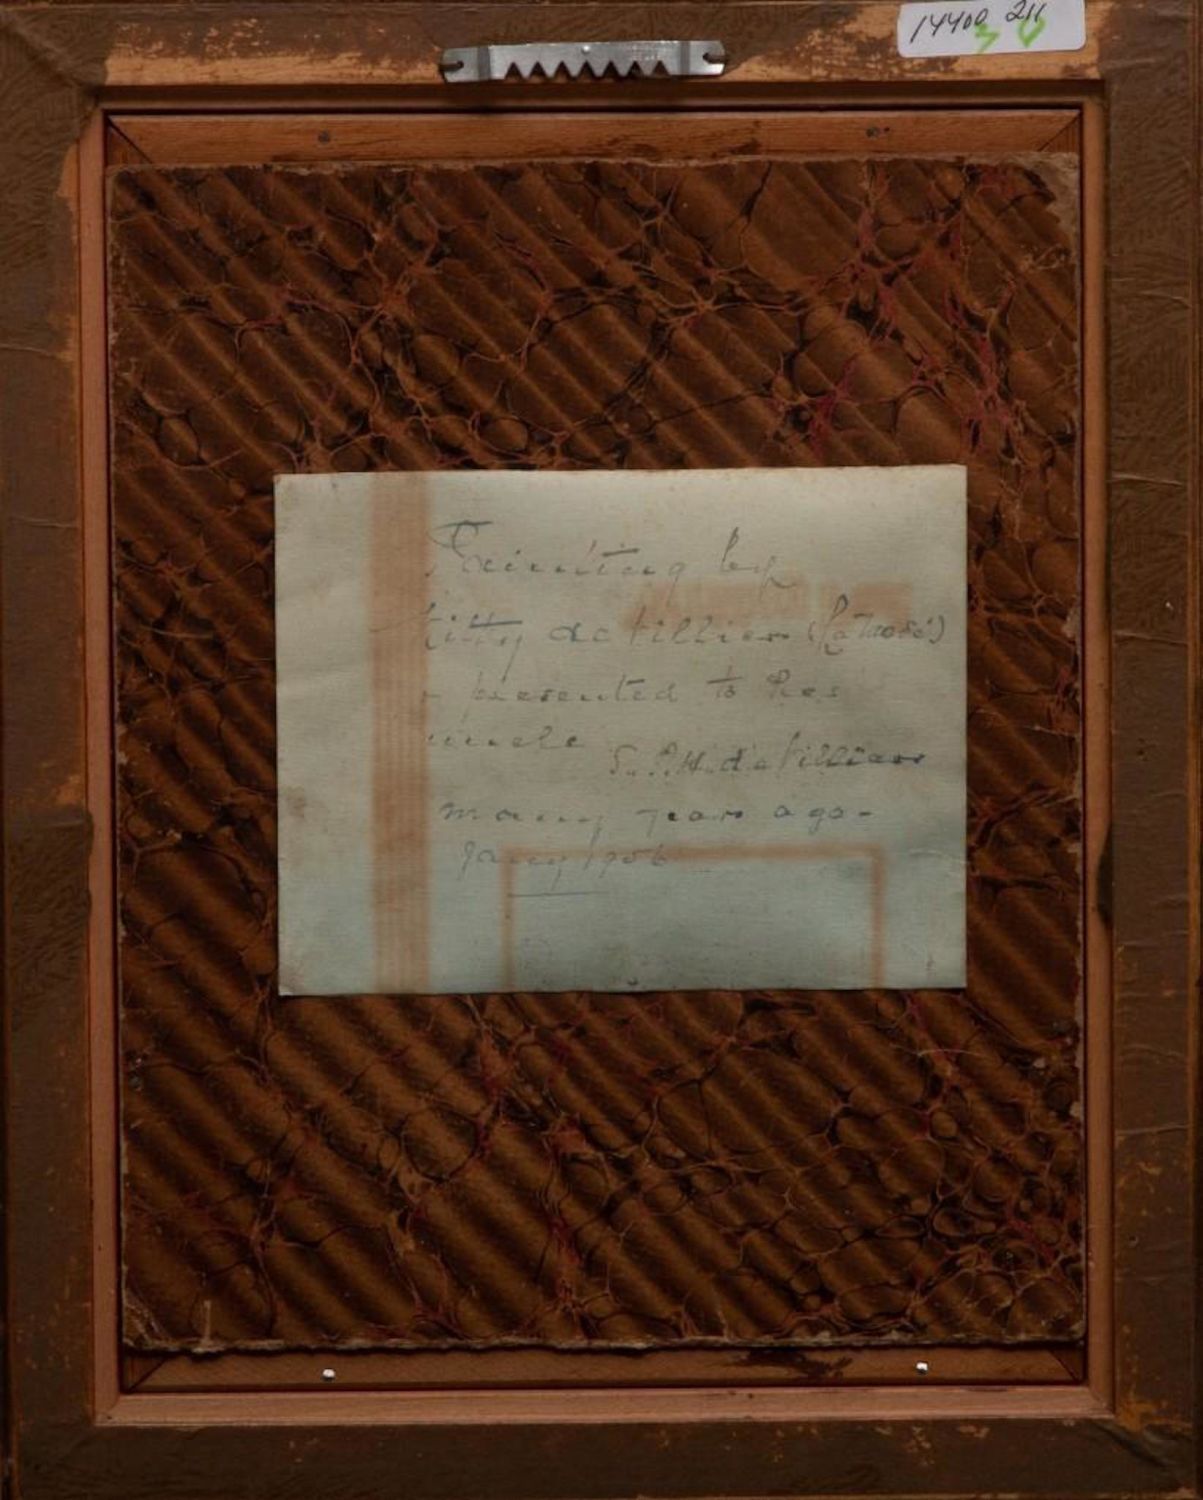 14400 211
Painting by
Kitty de Villiers
& presented to her
uncle S. P. H. de Villiers
many years ago -
Jany 1906